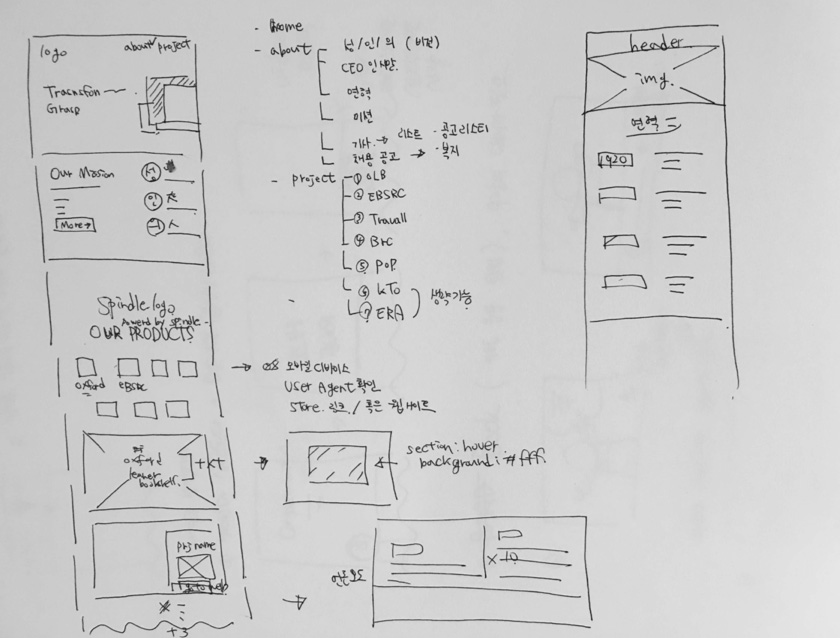 logo
about project
Our Mission
성
인
의
More →
Spindle logo
Powered by spindle
OUR PRODUCTS
oxford
EBSRC
oxford
txt
prj name
go to web
+3
- home
- about
성/인/의 (비전)
CEO 인사말
연혁
미션
기사 → 리스트 · 공고리스트
채용 공고 → · 복지
- project
① OLB
② EBSRC
③ Travall
④ BRC
⑤ POP
⑥ KTO
⑦ ERA
생략가능
→ OS 모바일 디바이스
User Agent 확인
Store 링크 / 혹은 웹 사이트
section : hover
background : #fff.
×10
header
img.
연혁
1920